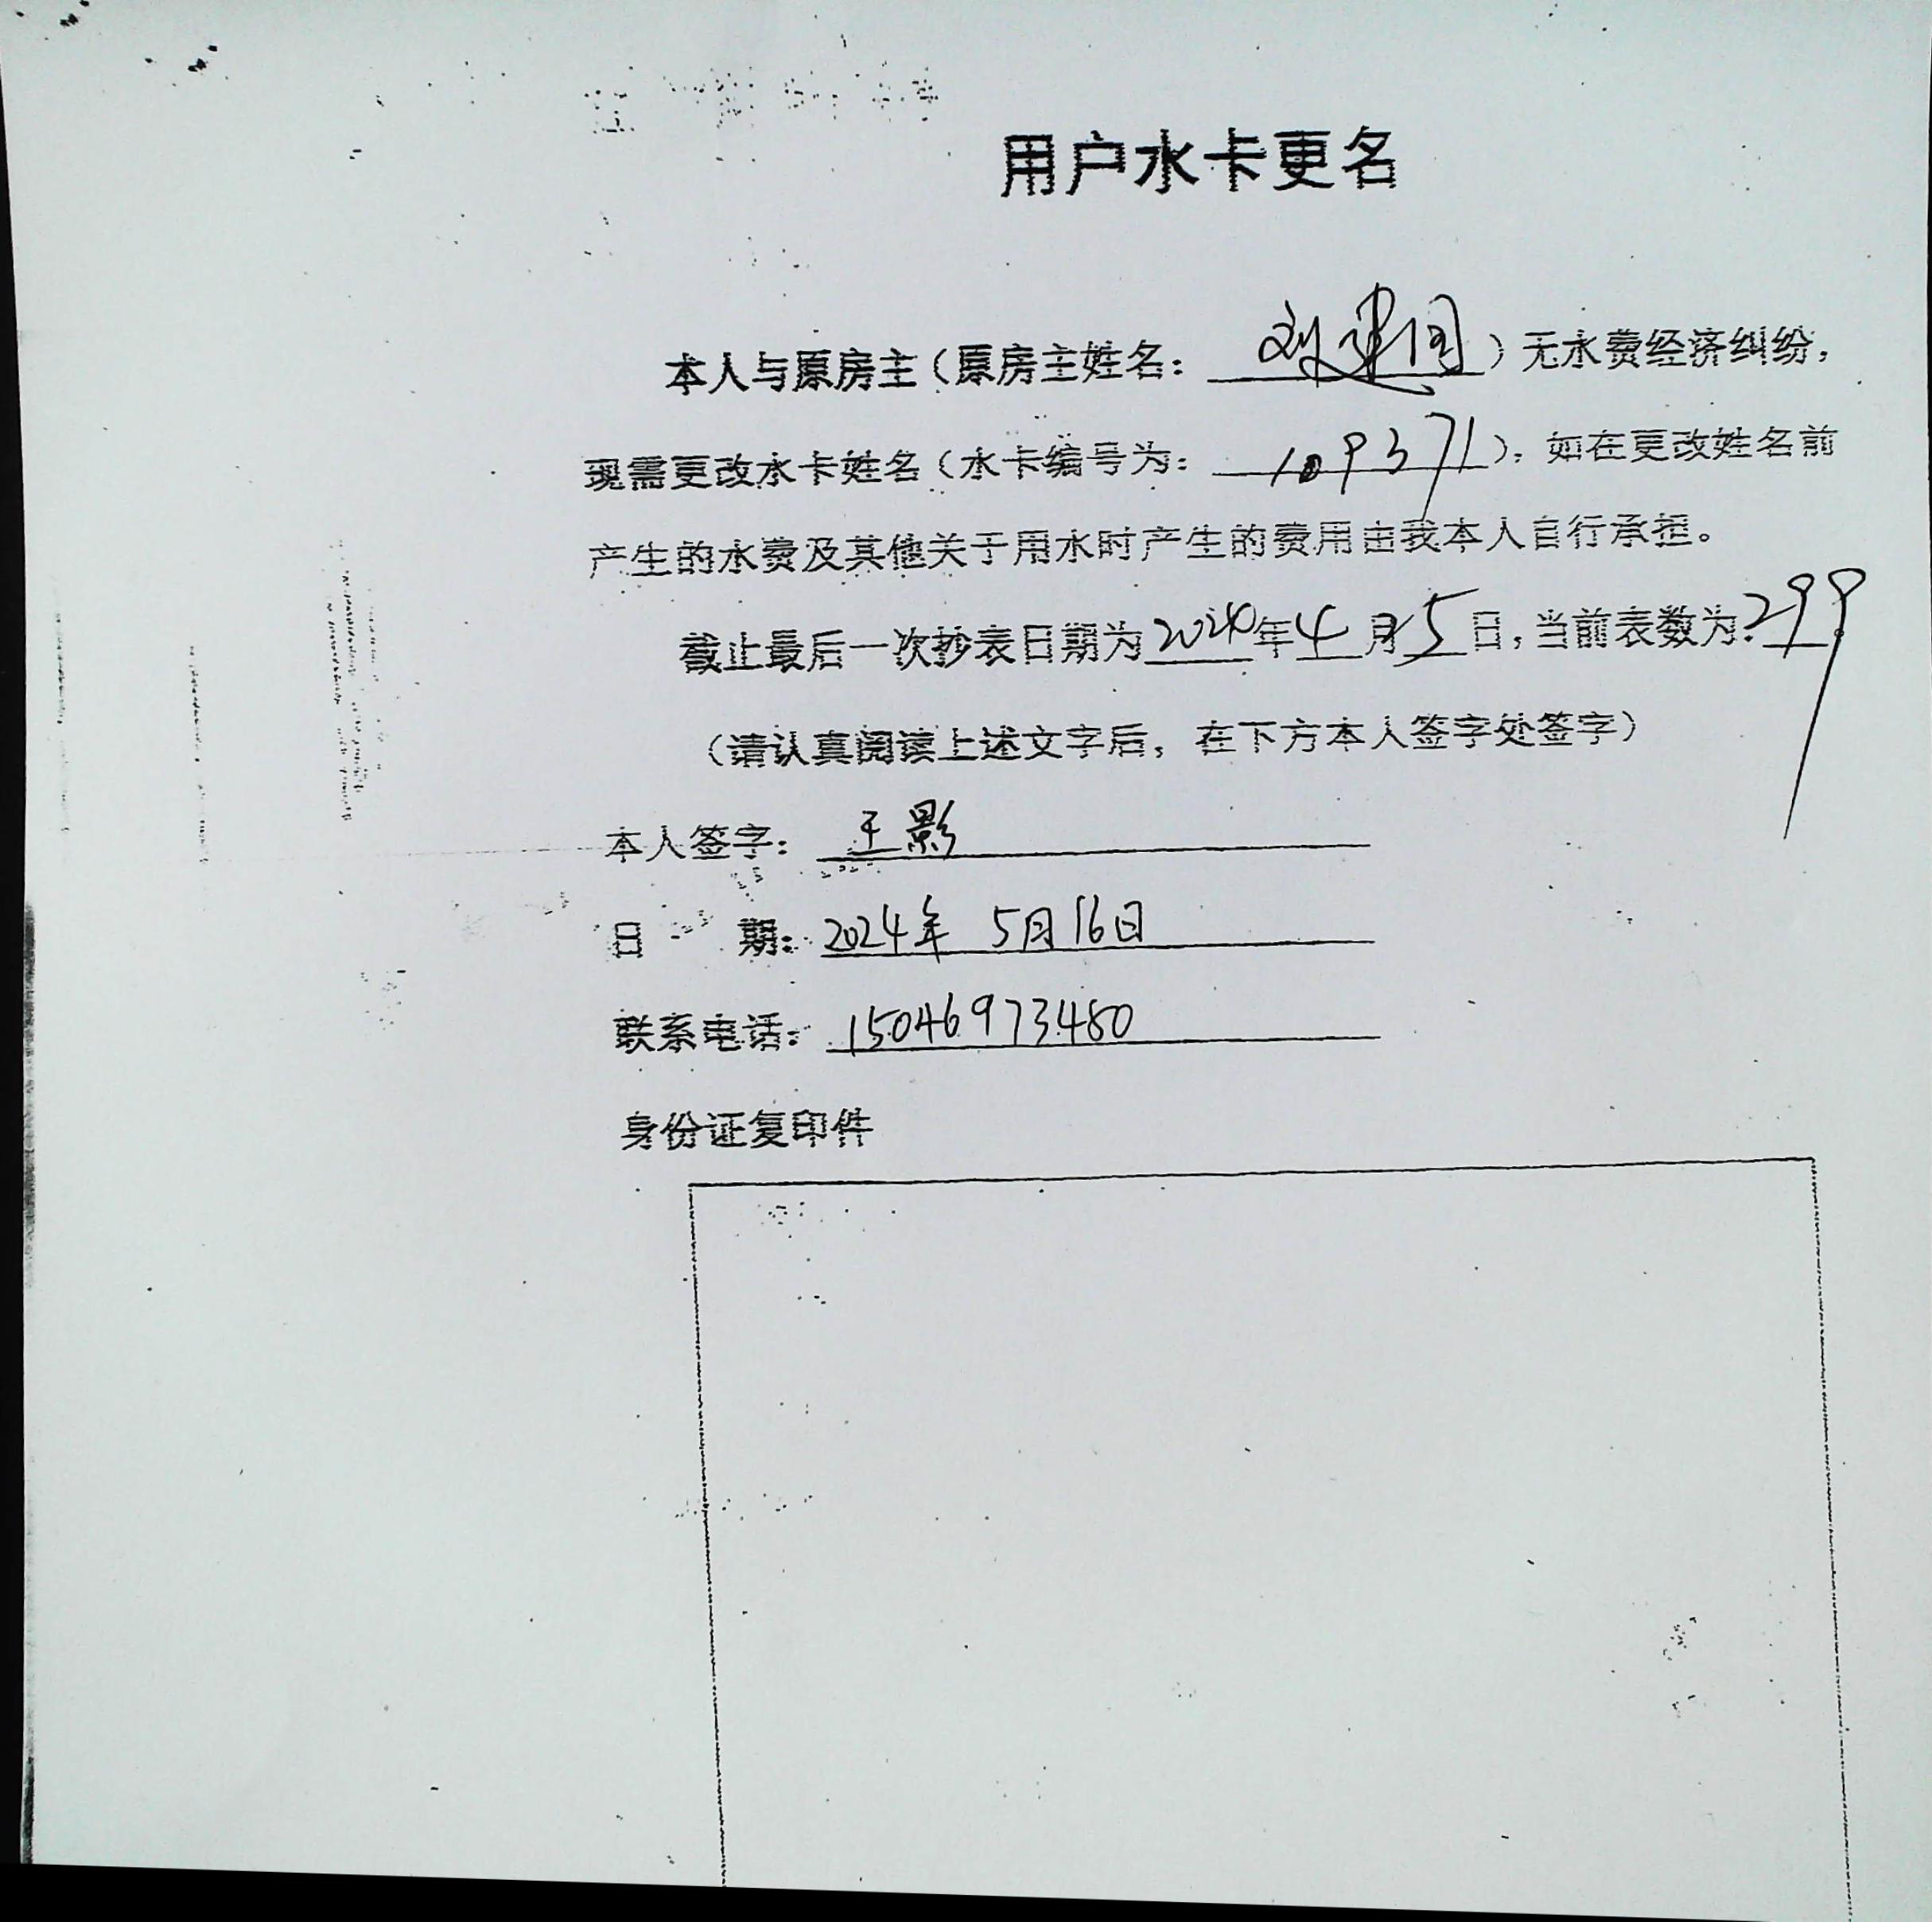 用户水卡更名
本人与原房主（原房主姓名：刘建国）无水费经济纠纷，
现需更改水卡姓名（水卡编号为：109371）；如在更改姓名前
产生的水费及其他关于用水时产生的费用由我本人自行承担。
截止最后一次抄表日期为2024年4月5日，当前表数为：299。
（请认真阅读上述文字后，在下方本人签字处签字）
本人签字：王影
日 期：2024年 5月16日
联系电话：15046973480
身份证复印件